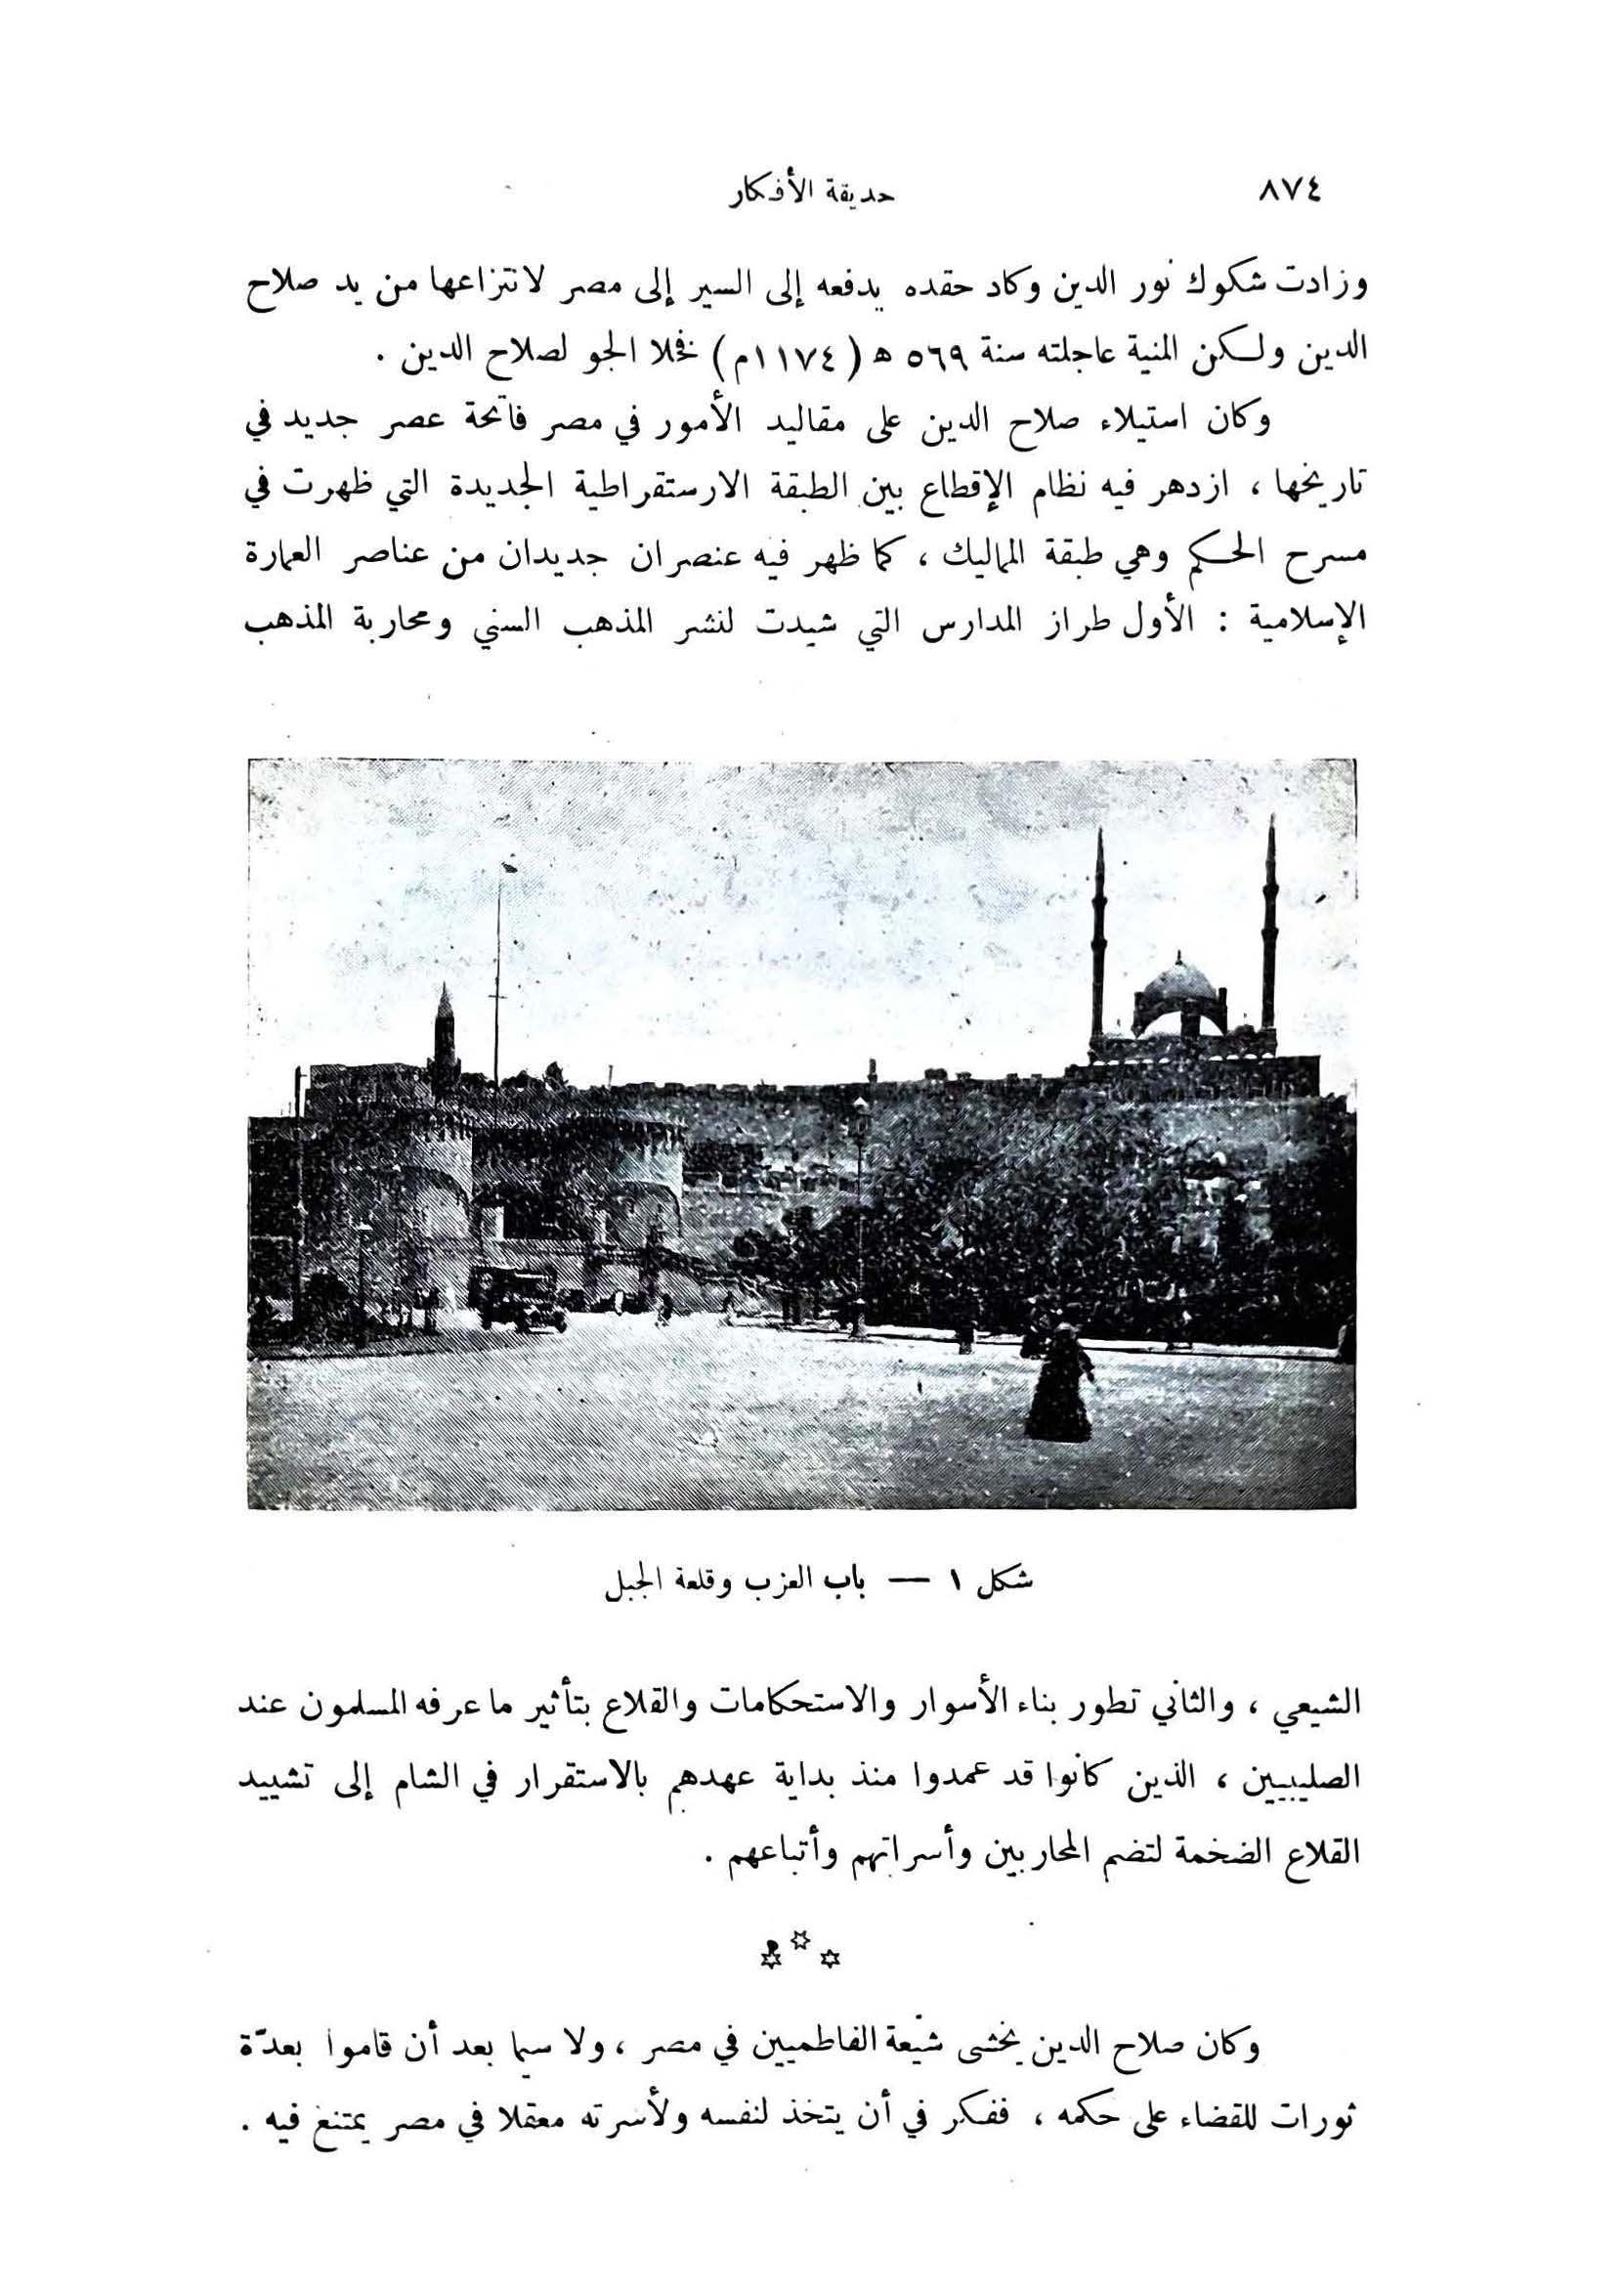 ٨٧٤
حديقة الأفكار
وزادت شكوك نور الدين وكاد حقده يدفعه إلى السير إلى مصر لانتزاعها من يد صلاح
الدين ولكن المنية عاجلته سنة ٥٦٩ ه (١١٧٤م) فخلا الجو لصلاح الدين .
وكان استيلاء صلاح الدين على مقاليد الأمور في مصر فاتحة عصر جديد في
تاريخها ، ازدهر فيه نظام الإقطاع بين الطبقة الارستقراطية الجديدة التي ظهرت في
مسرح الحكم وهي طبقة المماليك ، كما ظهر فيه عنصران جديدان من عناصر العمارة
الإسلامية : الأول طراز المدارس التي شيدت لنشر المذهب السني ومحاربة المذهب
شكل ١ — باب العزب وقلعة الجبل
الشيعي ، والثاني تطور بناء الأسوار والاستحكامات والقلاع بتأثير ما عرفه المسلمون عند
الصليبيين ، الذين كانوا قد عمدوا منذ بداية عهدهم بالاستقرار في الشام إلى تشييد
القلاع الضخمة لتضم المحاربين وأسراتهم وأتباعهم .
وكان صلاح الدين يخشى شيعة الفاطميين في مصر ، ولا سيما بعد أن قاموا بعدّة
ثورات للقضاء على حكمه ، ففكر في أن يتخذ لنفسه ولأسرته معقلا في مصر يمتنع فيه .